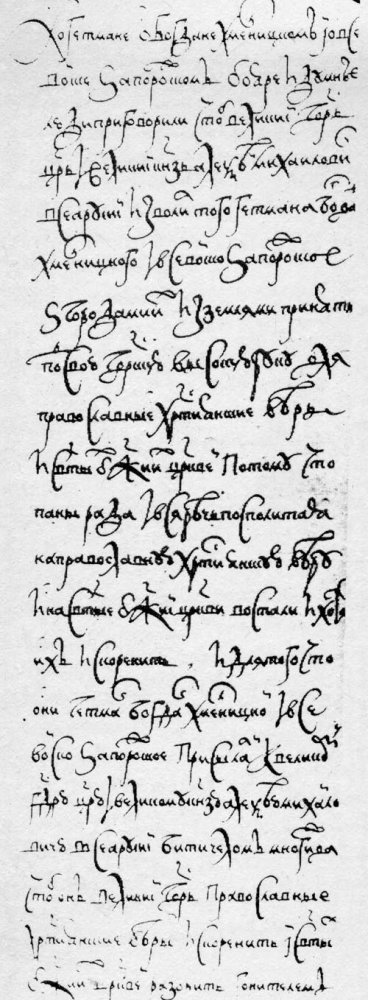 А о гетмане о Богдане Хмелницкомъ і о все
войске Запорожскомъ бояре и думные
люди приговорили чтоб великиі гдрь
црь и великиі кнзь алексѣй михайлович
всеа русиі изволил того гетмана богдана
Хмелницкого и все войско Запорожское
з городами их и землями принять
под свою гдрскую высокую руку для
православные хрстиянские вѣры
и стых бжиих црквей потому что
паны рада и вся рѣчь посполитая
на православную хрстиянскую вѣру
и на стые бжии цркви востали и хотят
ихъ искоренить, и для того что
они гетман богдан хмелницкой и все
войско Запорожское присылали к великому
гдрю црю и великому кнзю алексѣю михайло
вичю всеа русиі бити челомъ многижда
чтоб онъ великиі гдрь православные
хрстиянские вѣры искоренить и стых
бжиих црквей разорить гонителем